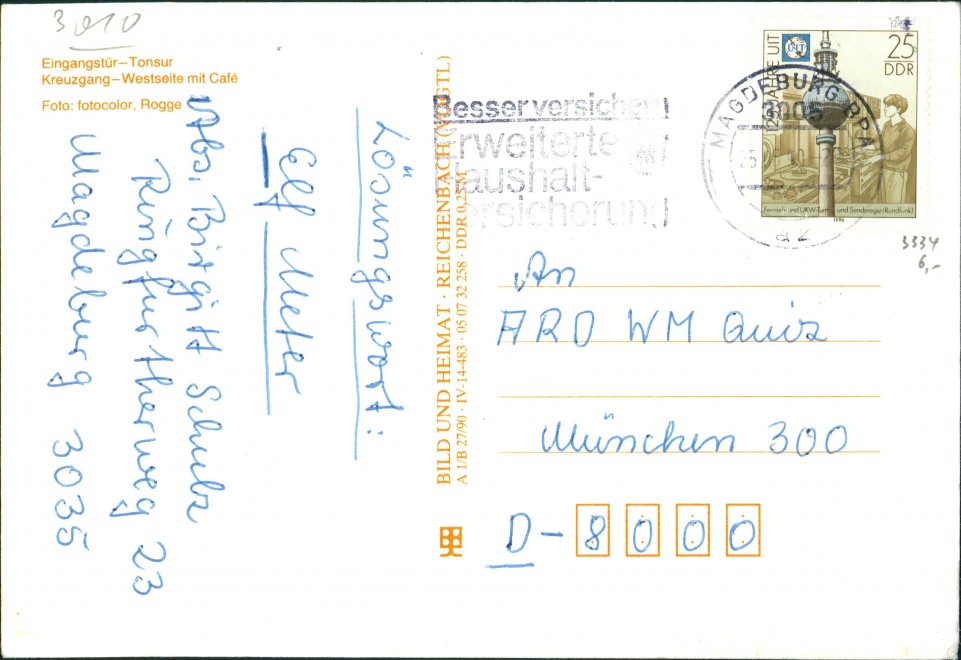 3010
Eingangstür–Tonsur
Kreuzgang–Westseite mit Café
Foto: fotocolor, Rogge
Lösungswort:
Elf Meter
Abs. Birgitt Schulz
Ringfurtherweg 23
Magdeburg 3035
BILD UND HEIMAT · REICHENBACH (VOGTL)
A 1/B 27/90 · IV-14-483 · 05 07 32 258 · DDR 0,25 M
Besser versichert
Erweiterte
Haushalt-
versicherung
MAGDEBURG BPA
3005
az
JAHRE UIT
UIT
25
DDR
Fernseh- und UKW-Turm und Senderegie (Rundfunk)
1990
3334
6,-
An
ARD WM Quiz
München 300
D-8000